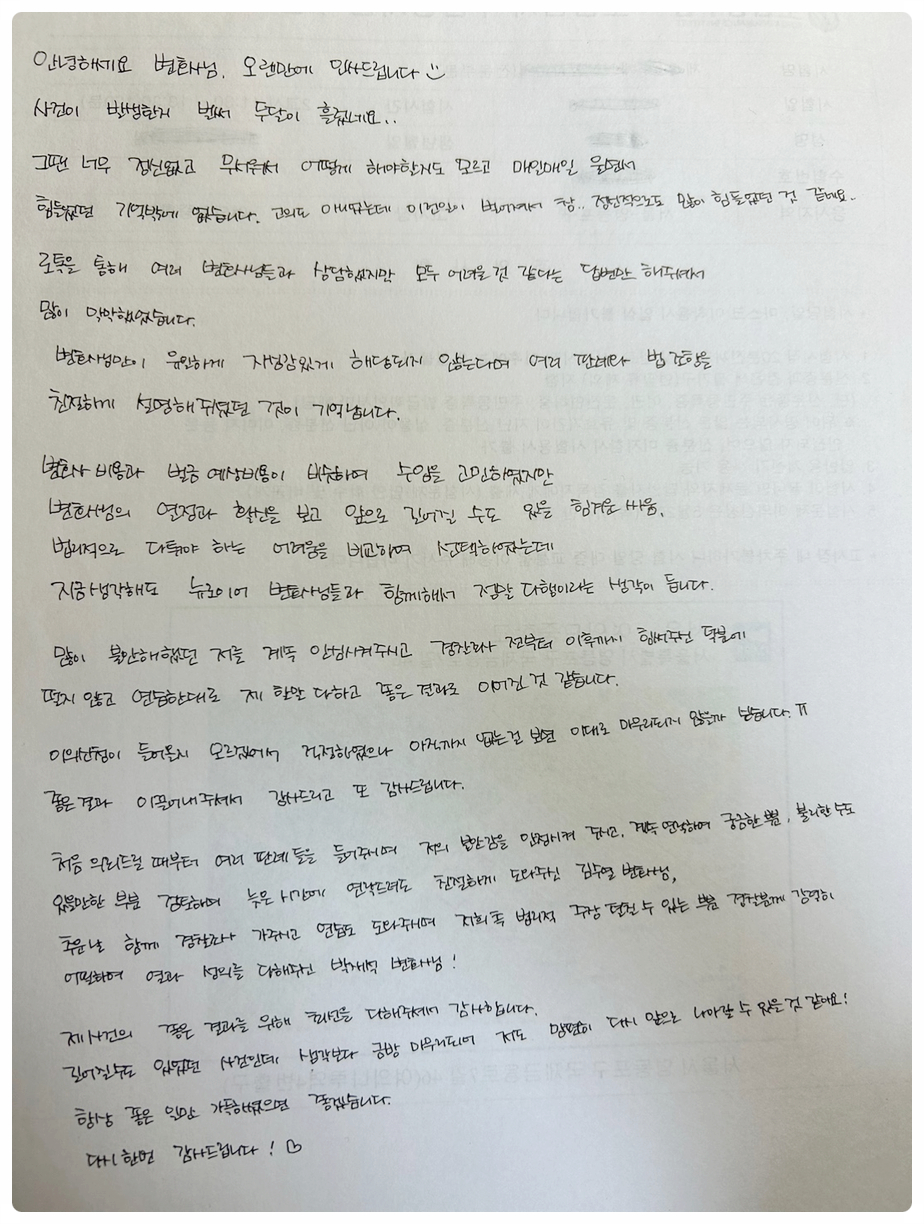 안녕하세요 변호사님, 오랜만에 인사드립니다
사건이 발생한지 벌써 두달이 흘렀네요..
그땐 너무 정신없고 무서워서 어떻게 해야할지도 모르고 매일매일 울면서
힘들었던 기억밖에 없습니다. 고의도 아니었는데 이런일이 벌어져서 참.. 정신적으로도 많이 힘들었던 것 같네요..
로톡을 통해 여러 변호사님들과 상담했지만 모두 어려울 것 같다는 답변만 해주셔서
많이 막막했었습니다.
변호사님만이 유일하게 자신감있게 해당되지 않는다며 여러 판례와 법 조항을
친절하게 설명해 주셨던 것이 기억납니다.
변호사 비용과 벌금 예상비용이 비슷하여 수임을 고민하였지만
변호사님의 열정과 확신을 보고 앞으로 길어질 수도 있을 힘겨운 싸움,
법리적으로 다퉈야 하는 어려움을 비교하여 선택하였는데
지금 생각해도 뉴로이어 변호사님들과 함께해서 정말 다행이라는 생각이 듭니다.
많이 불안해 했던 저를 계속 안심시켜주시고 경찰조사 전부터 이후까지 힘써주신 덕분에
떨지 않고 연습한대로 제 할말 다하고 좋은 결과로 이어진 것 같습니다.
이의신청이 들어올지 모르겠어서 걱정하였으나 아직까지 없는걸 보면 이대로 마무리되지 않을까 싶습니다. ㅠ
좋은 결과 이끌어내주셔서 감사드리고 또 감사드립니다.
처음 의뢰드릴 때부터 여러 판례들을 들어주시며 저의 불안감을 안심시켜 주시고, 계속 연락하여 궁금한 쁌, 불리한 수도
있을만한 부분 검토하며 늦은 시간에 연락드려도 친절하게 도와주신 김수열 변호사님,
추운날 함께 경찰조사 가주시고 연습도 도와주시며 저희 쪽 법리적 주장 펼칠 수 있는 쁌 경찰분께 강력히
어필하며 열과 성의를 다해주신 박재석 변호사님!
제 사건의 좋은 결과를 위해 최선을 다해주셔서 감사합니다.
길어질수도 있었던 사건인데 생각보다 금방 마무리되어 저도 맘편히 다시 앞으로 나아갈 수 있을 것 같아요!
항상 좋은 일만 가득하셨으면 좋겠습니다.
다시 한번 감사드립니다! ♡